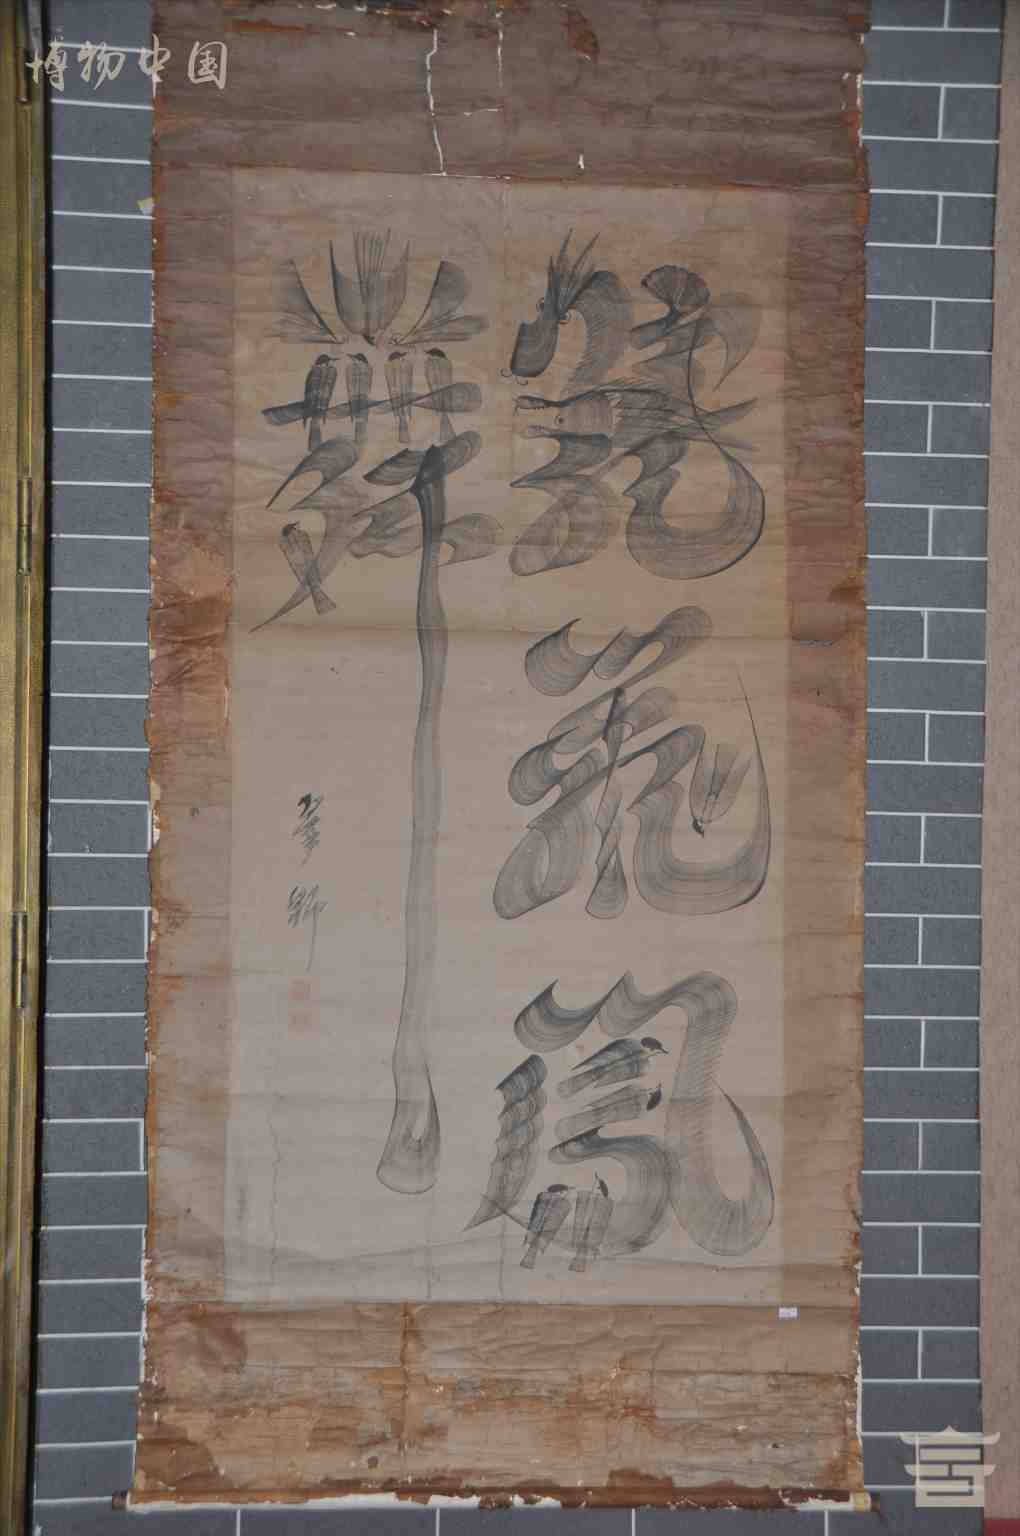 博物中国
龍飛鳳
舞